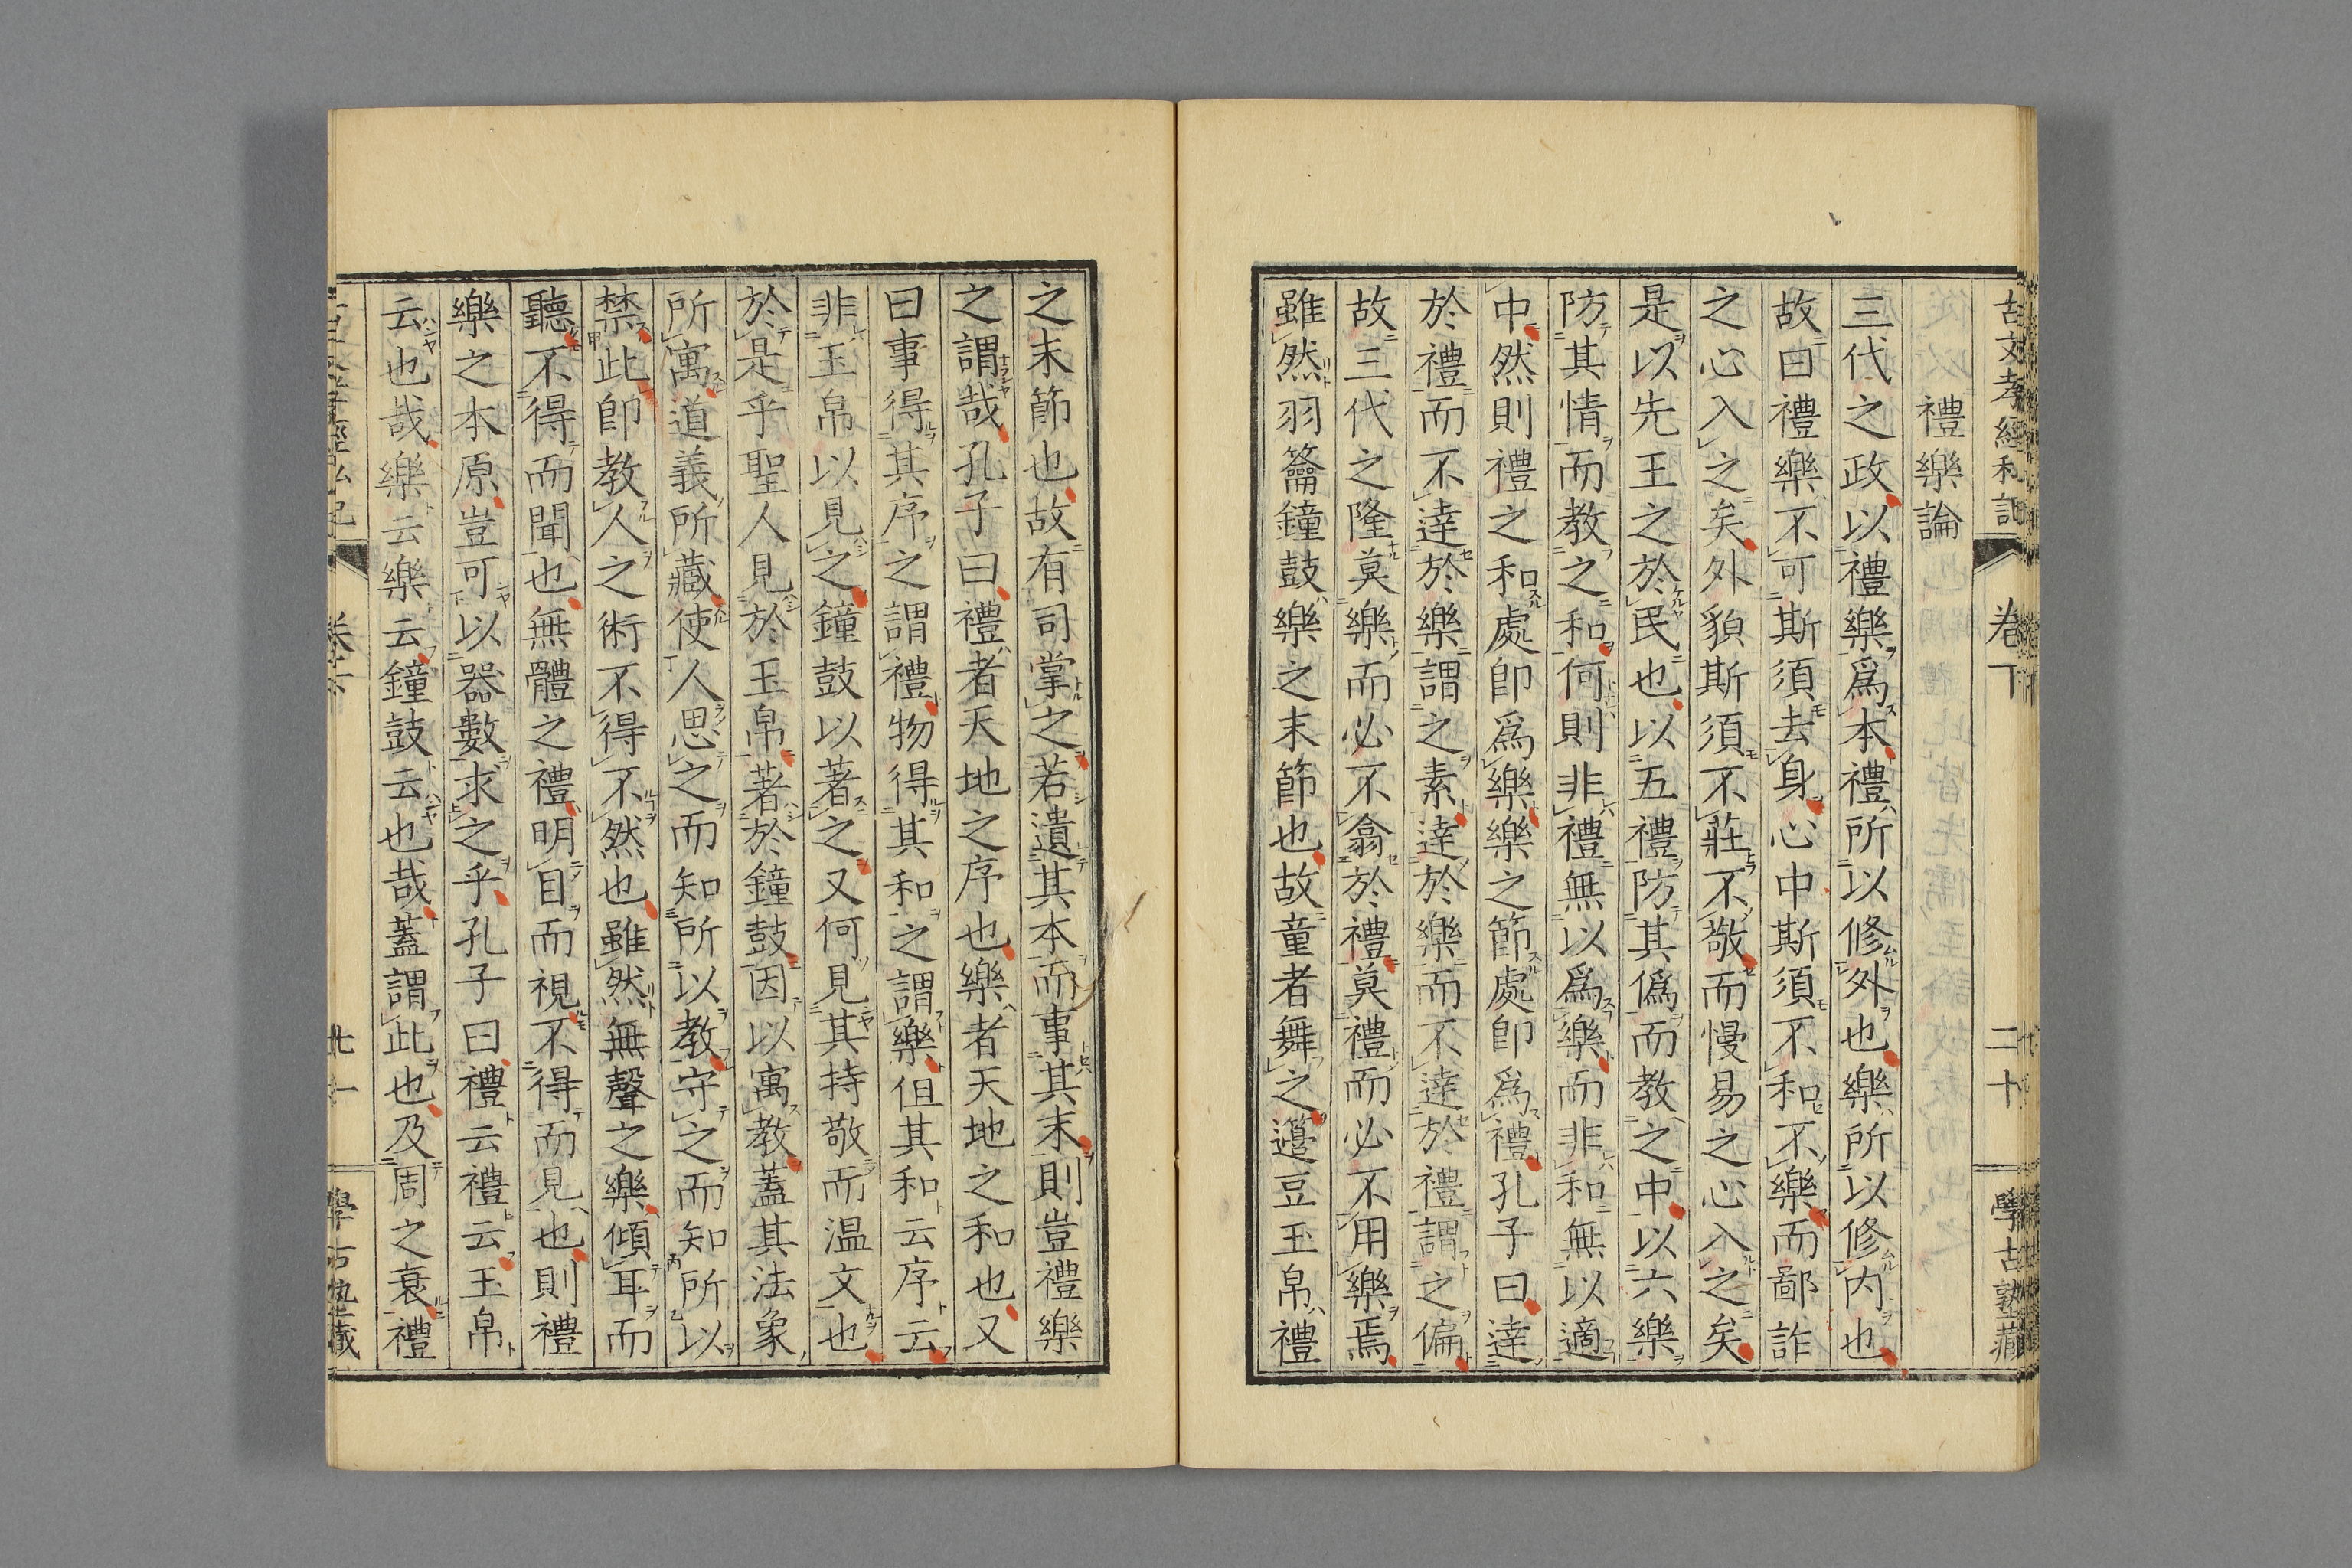 古文孝經私記　卷下　二十　學古塾藏
禮樂論
三代之政以禮樂爲本禮所以修外也樂所以修内也
故曰禮樂不可斯須去身心中斯須不和不樂而鄙詐
之心入之矣外貌斯須不莊不敬而慢易之心入之矣
是以先王之於民也以五禮防其僞而教之中以六樂
防其情而教之和何則非禮無以爲樂而非和無以適
中然則禮之和處卽爲樂樂之節處卽爲禮孔子曰達
於禮而不達於樂謂之素達於樂而不達於禮謂之偏
故三代之隆莫樂而必不翕於禮莫禮而必不用樂焉
雖然羽籥鐘鼓樂之末節也故童者舞之籩豆玉帛禮
之末節也故有司掌之若遺其本而事其末則豈禮樂
之謂哉孔子曰禮者天地之序也樂者天地之和也又
曰事得其序之謂禮物得其和之謂樂但其和云序云
非玉帛以見之鐘鼓以著之又何見其持敬而温文也
於是乎聖人見於玉帛著於鐘鼓因以寓教蓋其法象
所寓道義所藏使人思之而知所以教守之而知所以
禁此卽教人之術不得不然也雖然無聲之樂傾耳而
聽不得而聞也無體之禮明目而視不得而見也則禮
樂之本原豈可以器數求之乎孔子曰禮云禮云玉帛
云也哉樂云樂云鐘鼓云也哉蓋謂此也及周之衰禮